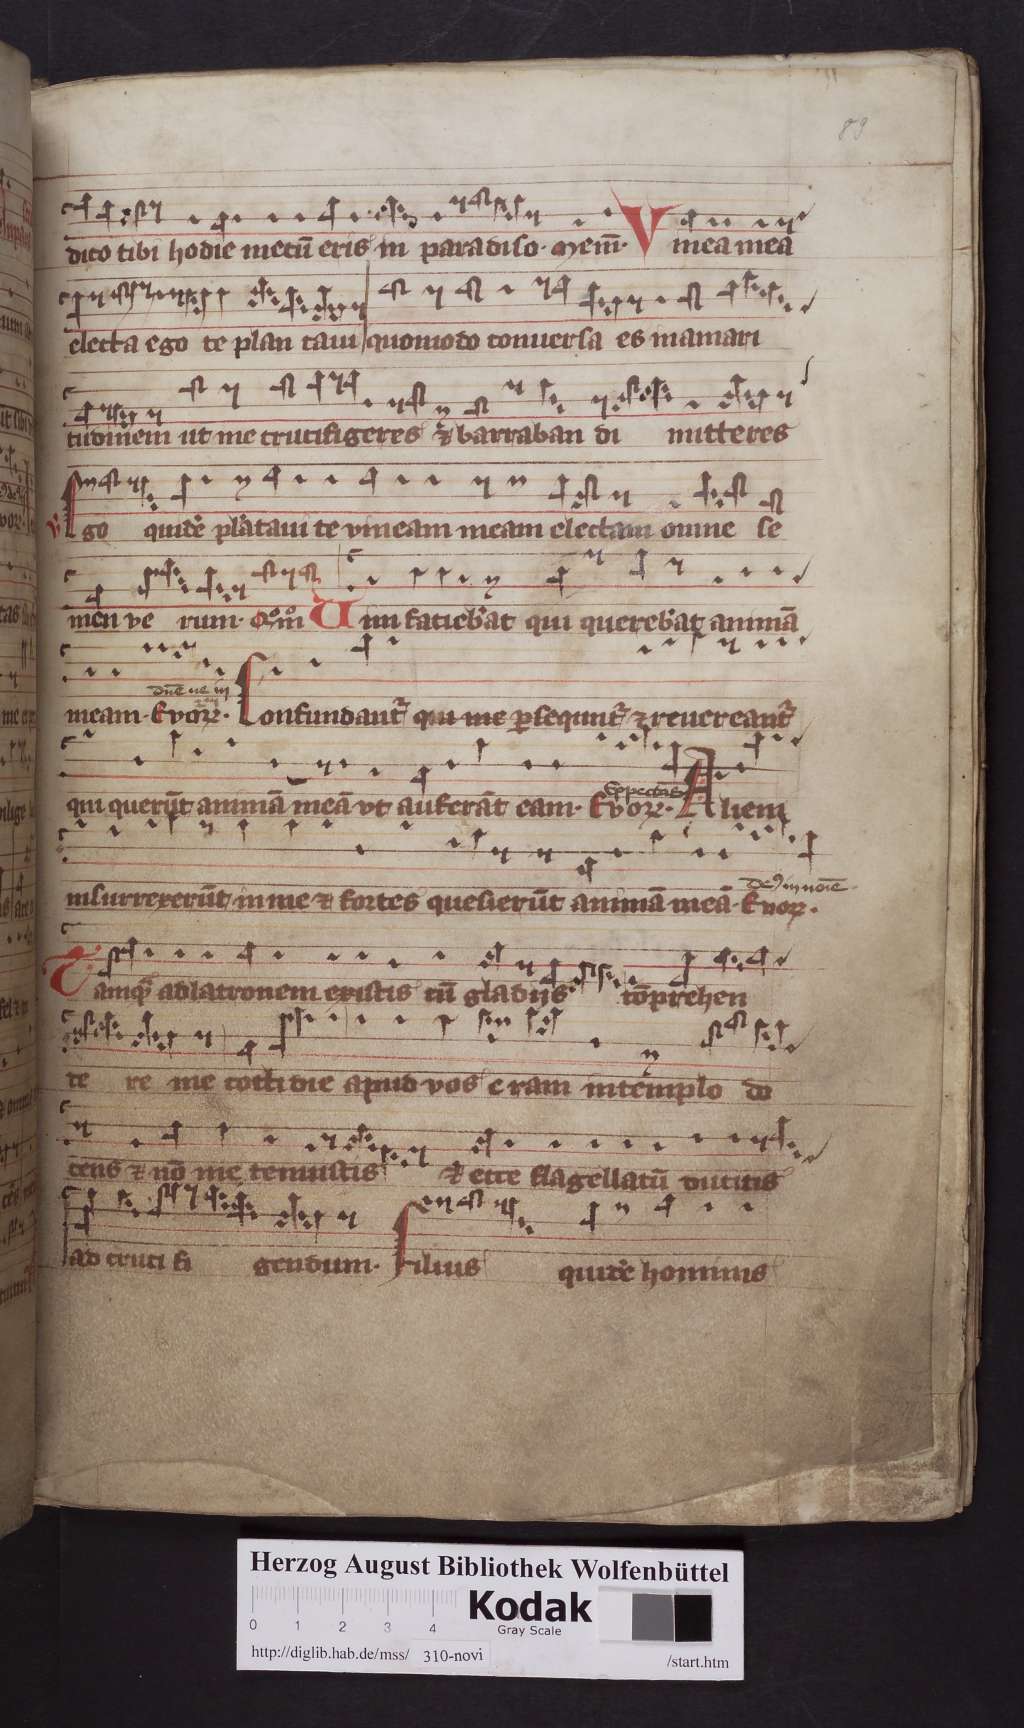 89
dico tibi hodie mecū eris in paradiso· Mem̄· V mea mea
electa ego te plan taui quomodo conuersa es inamari
tudinem ut me crucifigeres & barraban di mitteres
v̄ Ego quidē plātaui te vineam meam electam omne se
men ve rum· Qōm̄ Uim faciebāt qui querebāt animā
dn̄e ne in
meam· Evoꝝ· Confundantᷣ qui me ꝑsequntᷣ & reuereantᷣ
qui querūt animā meā vt auferāt eam· Evoꝝ· Expectās Alieni
insurrexerūt in me & fortes quesierūt animā meā· Evoꝝ· deꝰ in noīe
Tamqᷓ ad latronem existis cū gladijs cōprehen
de re me cottidie apud vos eram in templo do
cens & nō me tenuistis & ecce flagellatū ducitis
ad cruci fi gendum· Filius quidē hominis
Herzog August Bibliothek Wolfenbüttel
Kodak
Gray Scale
0 1 2 3 4
http://diglib.hab.de/mss/ 310-novi /start.htm